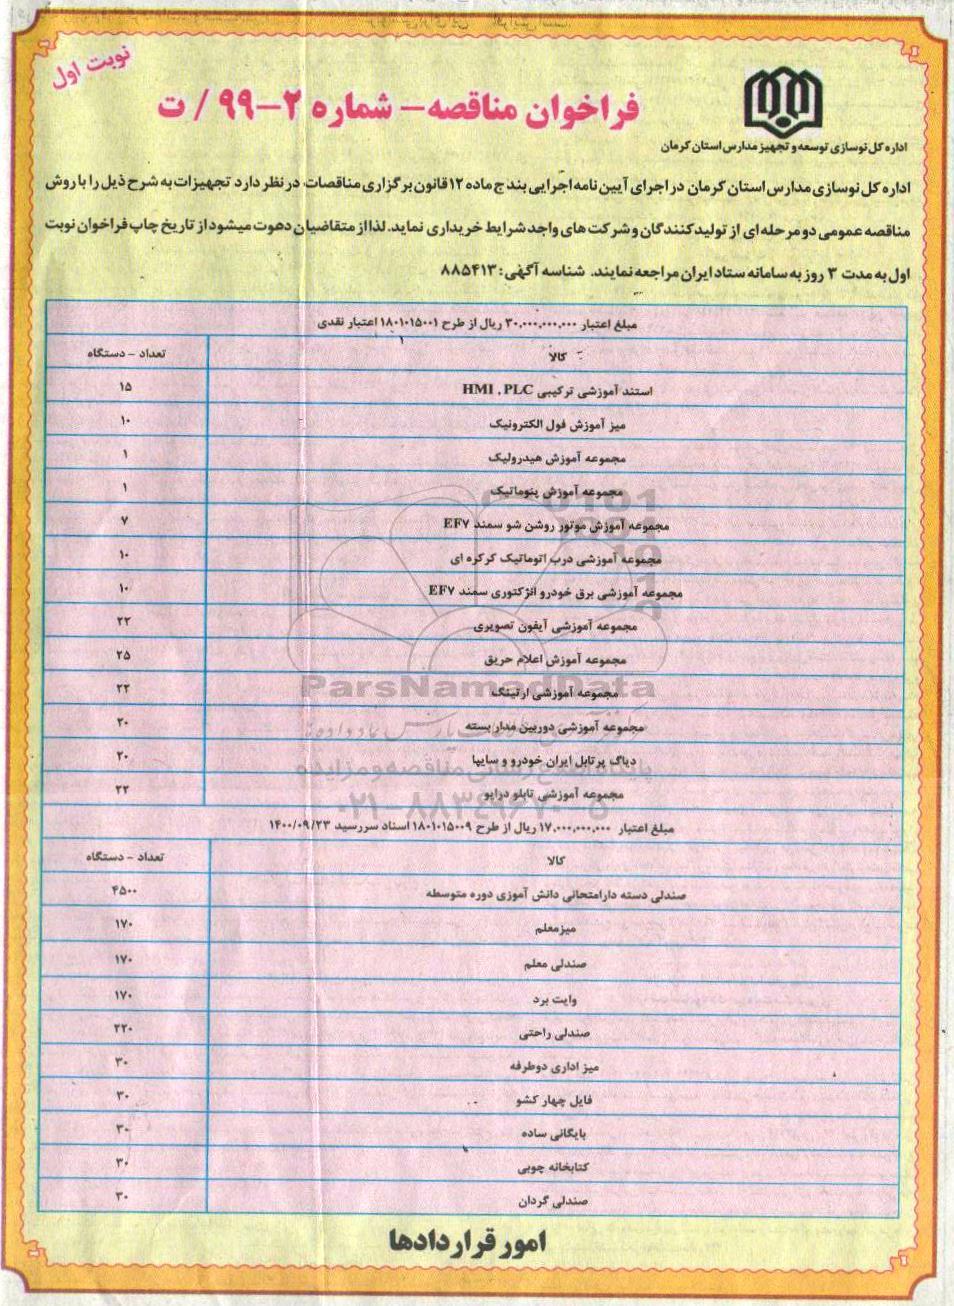 نوبت اول
فراخوان مناقصه - شماره ۲-۹۹ / ت
اداره کل نوسازی توسعه و تجهیز مدارس استان کرمان
اداره کل نوسازی مدارس استان کرمان در اجرای آیین نامه اجرایی بند ج ماده ۱۲ قانون برگزاری مناقصات در نظر دارد تجهیزات به شرح ذیل را با روش
مناقصه عمومی دو مرحله ای از تولیدکنندگان و شرکت های واجد شرایط خریداری نماید. لذا از متقاضیان دعوت میشود از تاریخ چاپ فراخوان نوبت
اول به مدت ۳ روز به سامانه ستاد ایران مراجعه نمایند. شناسه آگهی: ۸۸۵۴۱۳
مبلغ اعتبار ۳۰,۰۰۰,۰۰۰,۰۰۰ ریال از طرح ۱۸۰۱۰۱۵۰۰۱ اعتبار نقدی
کالا تعداد - دستگاه
استند آموزشی ترکیبی HMI , PLC ۱۵
میز آموزش فول الکترونیک ۱۰
مجموعه آموزش هیدرولیک ۱
مجموعه آموزش پنوماتیک ۱
مجموعه آموزش موتور روشن شو سمند EF۷ ۷
مجموعه آموزشی درب اتوماتیک کرکره ای ۱۰
مجموعه آموزشی برق خودرو انژکتوری سمند EF۷ ۱۰
مجموعه آموزشی آیفون تصویری ۲۲
مجموعه آموزش اعلام حریق ۲۵
مجموعه آموزشی ارتینگ ۲۲
مجموعه آموزشی دوربین مدار بسته ۲۰
دیاگ پرتابل ایران خودرو و سایپا ۲۰
مجموعه آموزشی تابلو درایو ۲۲
مبلغ اعتبار ۱۷,۰۰۰,۰۰۰,۰۰۰ ریال از طرح ۱۸۰۱۰۱۵۰۰۹ اسناد سررسید ۱۴۰۰/۰۹/۲۳
کالا تعداد - دستگاه
صندلی دسته دار امتحانی دانش آموزی دوره متوسطه ۴۵۰۰
میز معلم ۱۷۰
صندلی معلم ۱۷۰
وایت برد ۱۷۰
صندلی راحتی ۲۲۰
میز اداری دوطرفه ۳۰
فایل چهار کشو ۳۰
بایگانی ساده ۳۰
کتابخانه چوبی ۳۰
صندلی گردان ۳۰
امور قراردادها
ParsNamadData